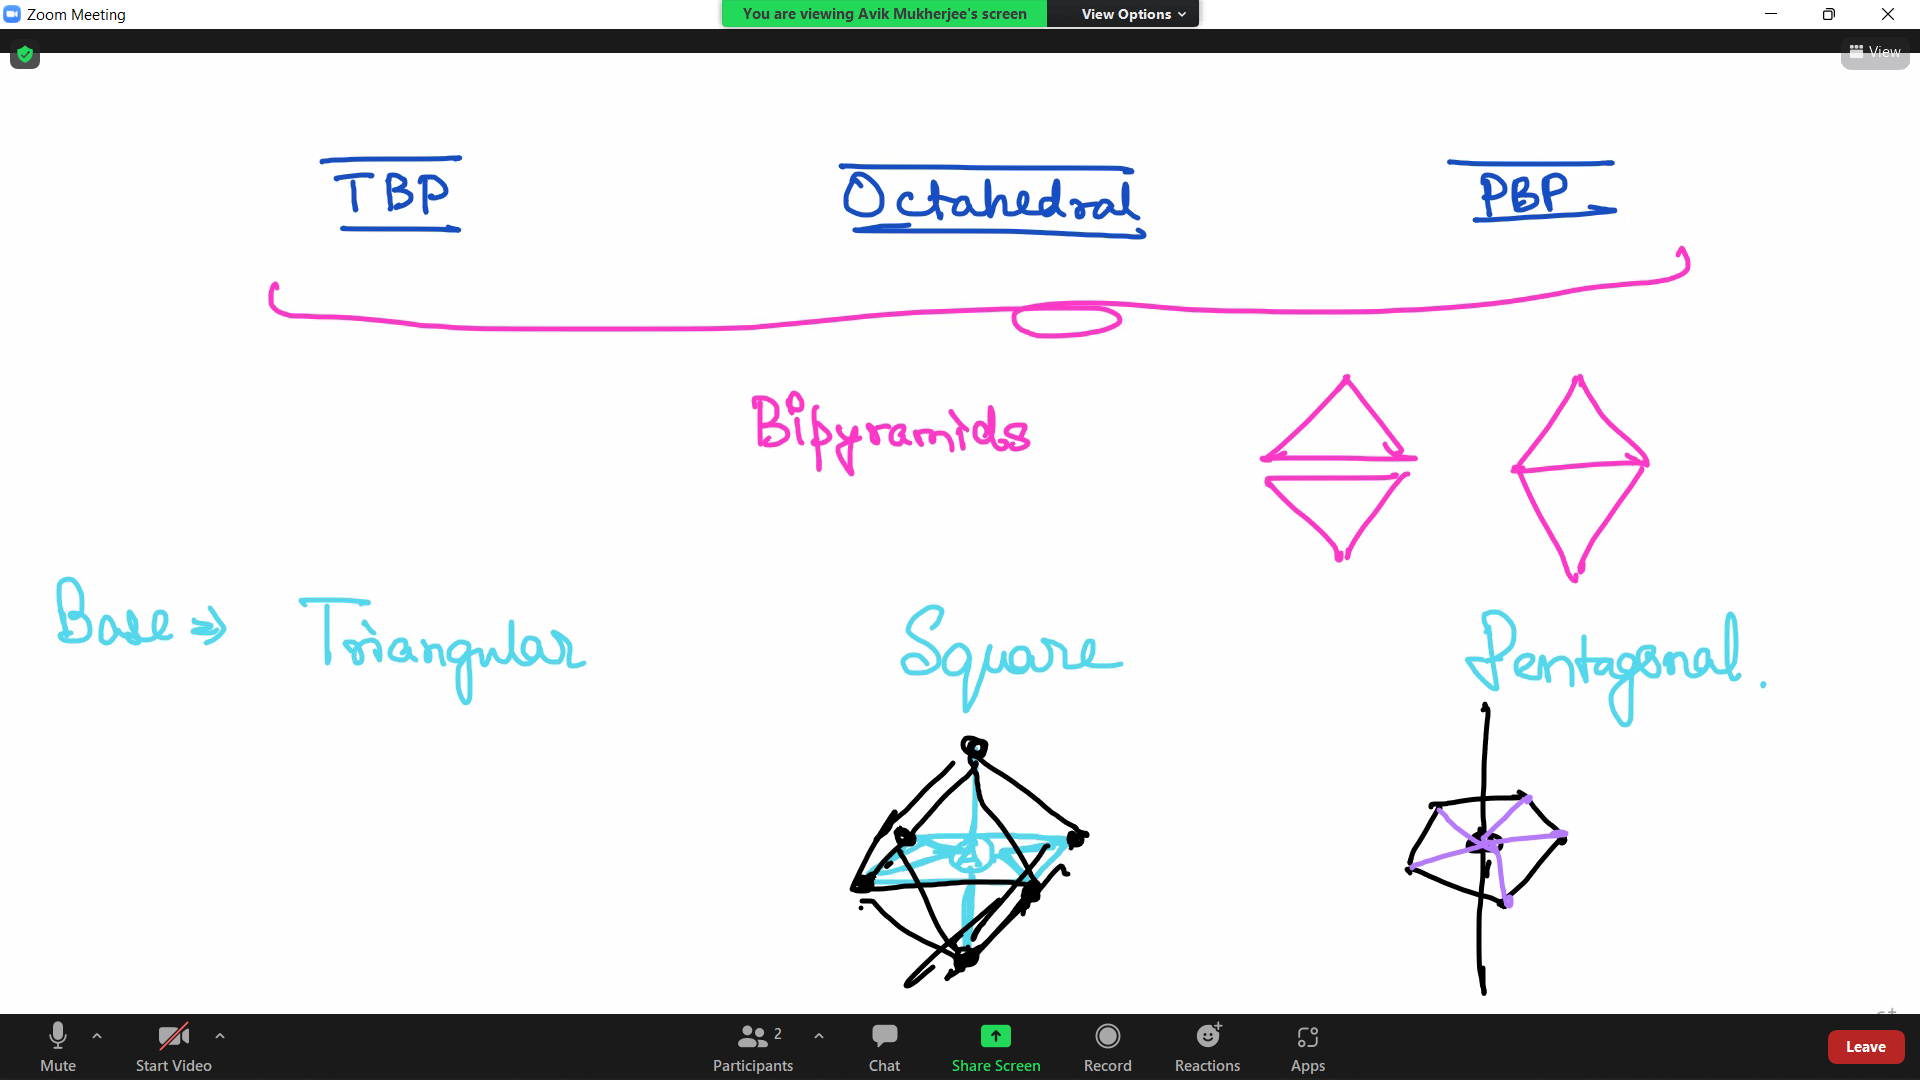 Zoom Meeting
You are viewing Avik Mukherjee's screen
View Options
View
TBP Octahedral PBP
Bipyramids
Base ⇒ Triangular Square Pentagonal.
A
Mute
Start Video
Participants
2
Chat
Share Screen
Record
Reactions
Apps
Leave